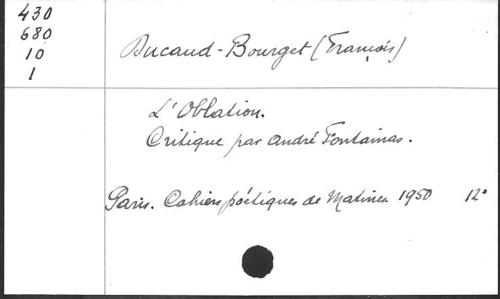 430
680
10
1
Ducaud-Bourget (François)
L'Oblation.
Critique par André Fontainas.
Paris. Cahiers poétiques de Matines. 1950 12°